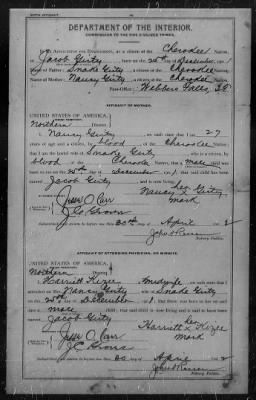 BIRTH AFFIDAVIT.
DEPARTMENT OF THE INTERIOR.
COMMISSION TO THE FIVE CIVILIZED TRIBES.
IN RE APPLICATION FOR ENROLLMENT, as a citizen of the Cherokee Nation,
of Jacob Girty, born on the 25th day of December, 1
Name of Father: Snake Girty a citizen of the Cherokee Nation.
Name of Mother: Nancy Girty a citizen of the Cherokee Nation.
Post-Office: Webbers Falls,
AFFIDAVIT OF MOTHER.
UNITED STATES OF AMERICA,
Northern District.
I, Nancy Girty, on oath state that I am 27
years of age and a citizen, by blood, of the Cherokee Nation;
that I am the lawful wife of Snake Girty, who is a citizen, by
blood of the Cherokee Nation; that a male child was
born to me on 25th day of December, 1 that said child has been
named Jacob Girty, and is now living.
her
Nancy x Girty
mark
Jesse O. Carr
Subscribed and sworn to before me this 30th day of April, 2
Notary Public.
AFFIDAVIT OF ATTENDING PHYSICIAN, OR MIDWIFE.
UNITED STATES OF AMERICA,
Northern District.
I, Harriett Kizee, a midwife, on oath state that I
attended on Mrs. Nancy Girty, wife of Snake Girty
on the 25th day of December, 1; that there was born to her on said date a
male child; that said child is now living and is said to have been named
Jacob Girty
her
Harriett x Kizee
mark
Jesse O. Carr
Subscribed and sworn to before me this 30 day of April, 2
Notary Public.